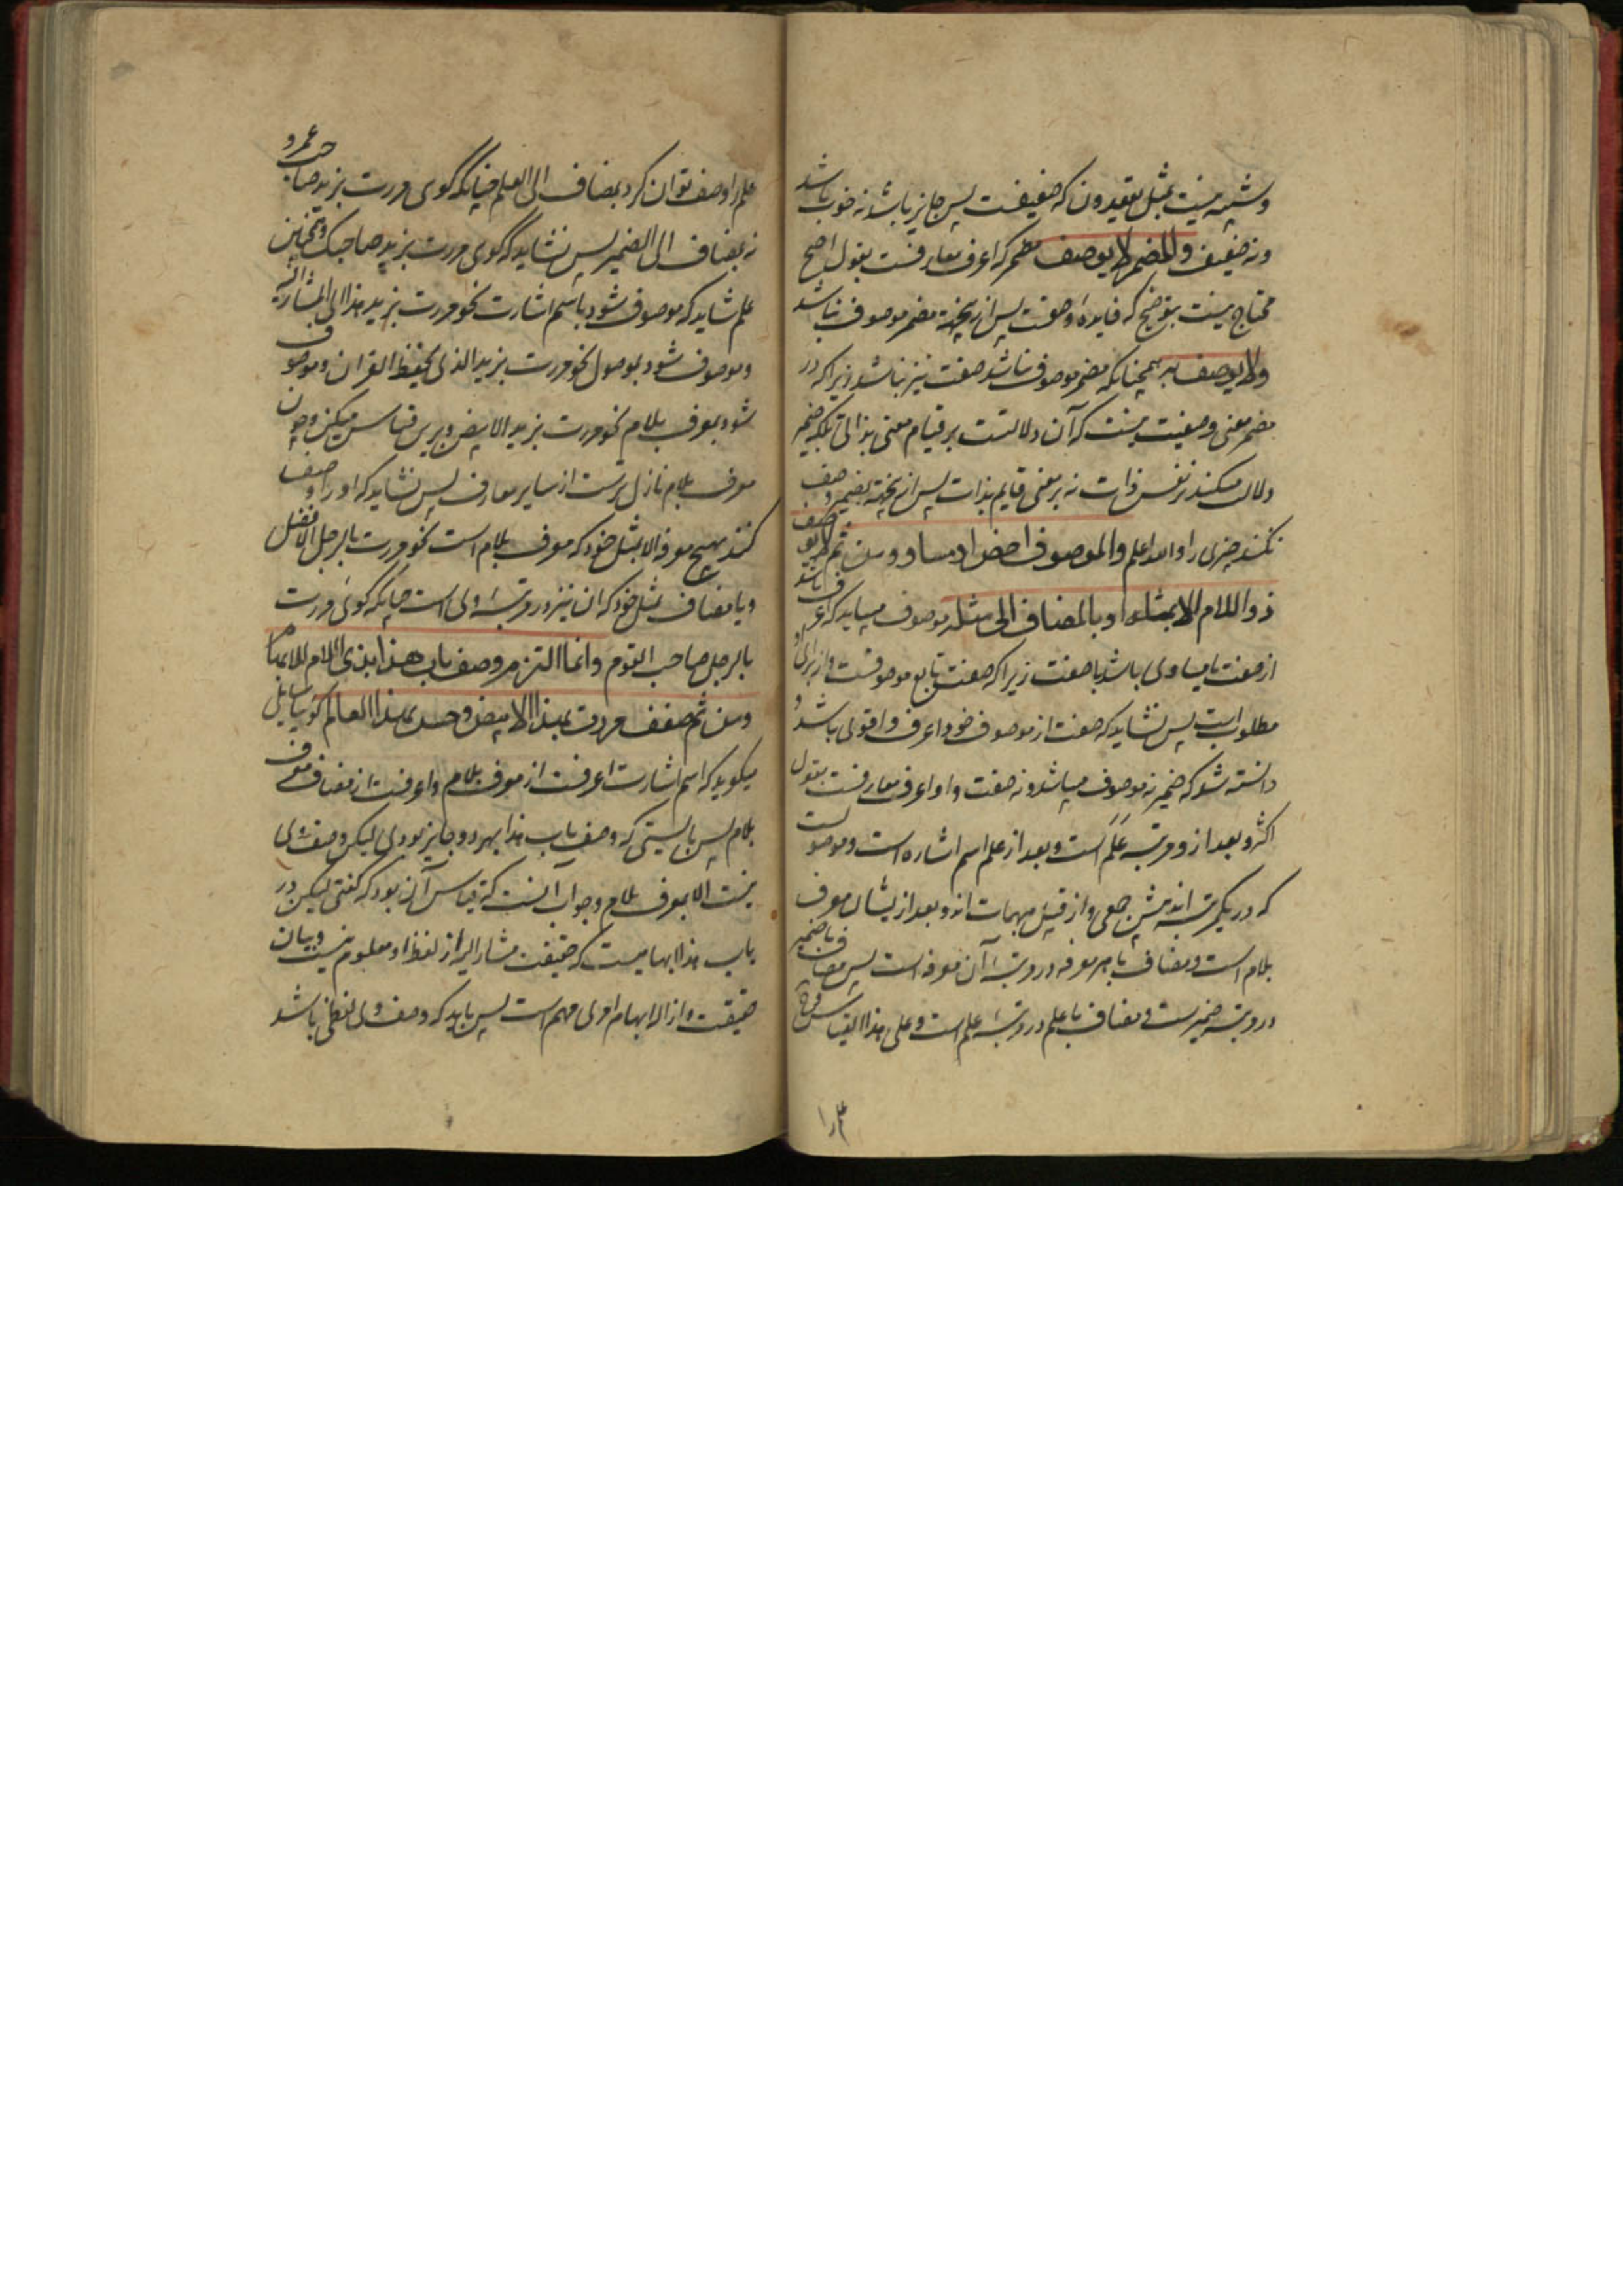 وشبیه نیست بمثل یقعدون که ضعیفست پس جایز باشد نه خوب باشد
ونه ضعیف والمضمر لا یوصف مضمر که اعرف معارفست بقول اصح
محتاج نیست بتوضیح که فایدهٔ وصفست پس ازین جهة مضمر موصوف نباشد
ولا یوصف به همچنانکه مضمر موصوف نباشد صفت نیز نباشد زیرا که در
مضمر معنی وصفیت نیست که آن دلالتست بر قیام معنی بذاتی بلکه ضمیر
دلالت میکند بر نفس ذات نه بر معنی قایم بذات پس ازین جهة بضمیر وصف
نکنند چیزی را والله اعلم والموصوف اخص او مساو ومن ثم لم یوصف
ذو اللام الا بمثله او بالمضاف الی مثله موصوف میباید که اعرف باشد
از صفت یا مساوی باشد با صفت زیرا که صفت تابع موصوفست و از برای او
مطلوب است پس نشاید که صفت از موصوف خود اعرف و اقوی باشد و
دانسته شد که ضمیر نه موصوف میباشد ونه صفت و او اعرف معارفست بقول
اکثر و بعد از و مرتبه علم است و بعد از علم اسم اشاره است و موصولست
که در یک مرتبه اند پیش جمعی و از قبیل مبهمات اند و بعد از یشان معرف
بلام است ومضاف با هر معرفه در مرتبهٔ آن معرفه است پس مضاف با ضمیر
در مرتبه ضمیرست و مضاف با علم در مرتبهٔ علم است وعلی هذا القیاس
علم را
علم را وصف توان کرد بمضاف الی العلم چنانکه گوی مررت بزید صاحب عمرو
نه بمضاف الی الضمیر پس نشاید که گوی مررت بزید صاحبک وهمچنین
علم شاید که موصوف شود باسم اشارت نحو مررت بزید هذا ای المشار الیه
وموصوف شود بموصول نحو مررت بزید الذی یحفظ القران وموصوف
شود بمعرف بلام نحو مررت بزید الابیض و برین قیاس میکن و چون
معرف بلام نازل ترست از سایر معارف پس نشاید که او را وصف
کنند بهیچ معرفه الا بمثل خود که معرف بلام است نحو مررت بالرجل الافضل
و یا مضاف بمثل خود که ان نیز در مرتبهٔ وی است چنانکه گوی مررت
بالرجل صاحب القوم وانما التزم وصف باب هذا بذی اللام للابهام
ومن ثم ضعف مررت بهذا الابیض وحسن بهذا العالم گویا سایل
میگوید که اسم اشارت اعرفست از معرف بلام و اعرفست از مضاف معرف
بلام پس بایستی که وصف باب هذا بهر دو جایز بودی لیکن وصف وی
نیست الا بمعرف بلام وجواب آنست که قیاس آن بود که گفتی لیکن در
باب هذا ابهامیست که حقیقت مشار الیه از لفظ او معلوم نیست و بیان
حقیقت و ازاله ابهام اوی مهم است پس باید که وصف وی لفظی باشد